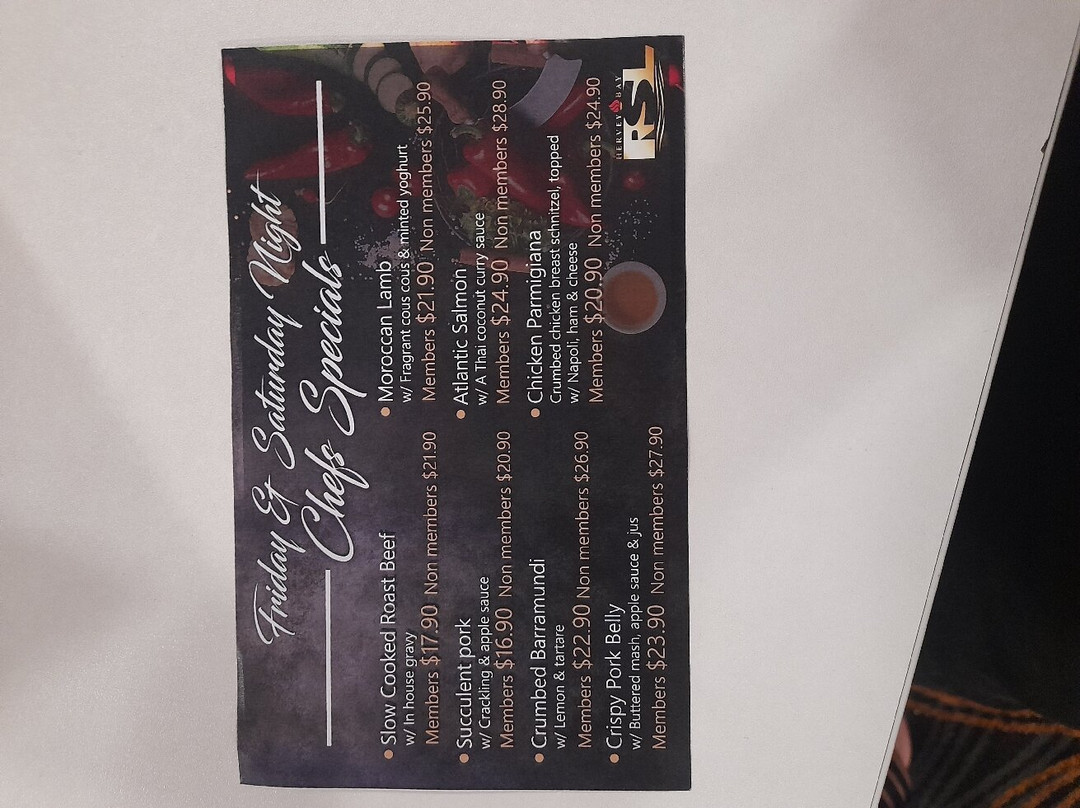 Friday & Saturday Night
Chefs Specials
• Slow Cooked Roast Beef
w/ In house gravy
Members $17.90 Non members $21.90
• Succulent pork
w/ Crackling & apple sauce
Members $16.90 Non members $20.90
• Crumbed Barramundi
w/ Lemon & tartare
Members $22.90 Non members $26.90
• Crispy Pork Belly
w/ Buttered mash, apple sauce & jus
Members $23.90 Non members $27.90
• Moroccan Lamb
w/ Fragrant cous cous & minted yoghurt
Members $21.90 Non members $25.90
• Atlantic Salmon
w/ A Thai coconut curry sauce
Members $24.90 Non members $28.90
• Chicken Parmigiana
Crumbed chicken breast schnitzel, topped
w/ Napoli, ham & cheese
Members $20.90 Non members $24.90
HERVEY BAY
RSL